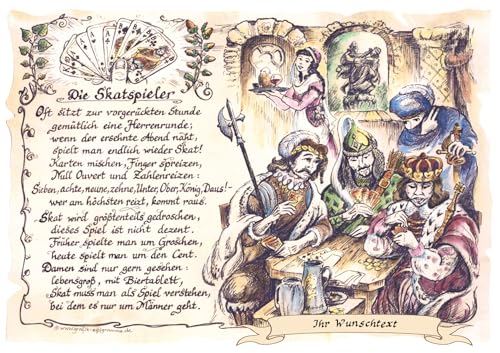 Die Skatspieler
Oft sitzt zur vorgerückten Stunde
gemütlich eine Herrenrunde;
wenn der ersehnte Abend naht,
spielt man endlich wieder Skat!
Karten mischen, Finger spreizen,
Null Ouvert und Zahlenreizen:
Sieben, achte, neune, zehne, Unter, Ober, König, Daus!-
wer am höchsten reizt, kommt raus.
Skat wird größtenteils gedroschen,
dieses Spiel ist nicht dezent.
Früher spielte man um Groschen,
heute spielt man um den Cent.
Damen sind nur gern gesehen:
lebensgroß, mit Biertablett,
Skat muss man als Spiel verstehen,
bei dem es nur um Männer geht.
Ihr Wunschtext